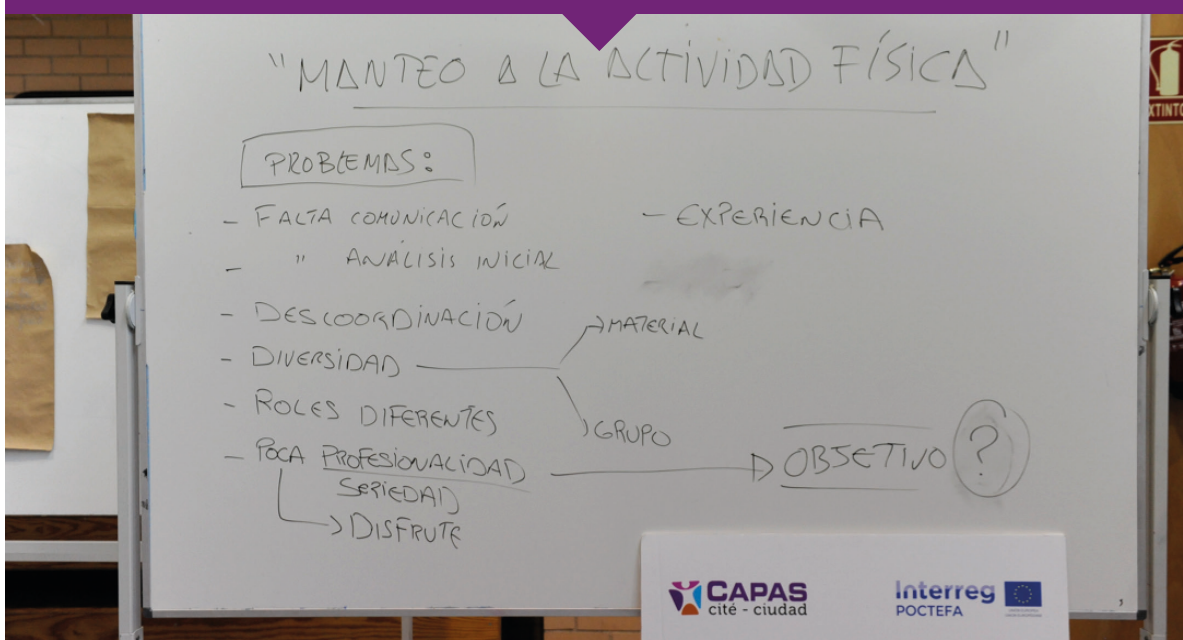 "MANTEO A LA ACTIVIDAD FÍSICA"
PROBLEMAS:
- FALTA COMUNICACIÓN
- " ANÁLISIS INICIAL
- DESCOORDINACIÓN
- DIVERSIDAD
→ MATERIAL
→ GRUPO
- ROLES DIFERENTES
- POCA PROFESIONALIDAD
SERIEDAD
→ DISFRUTE
- EXPERIENCIA
→ OBJETIVO ?
CAPAS
cité - ciudad
Interreg
POCTEFA
XTINTO